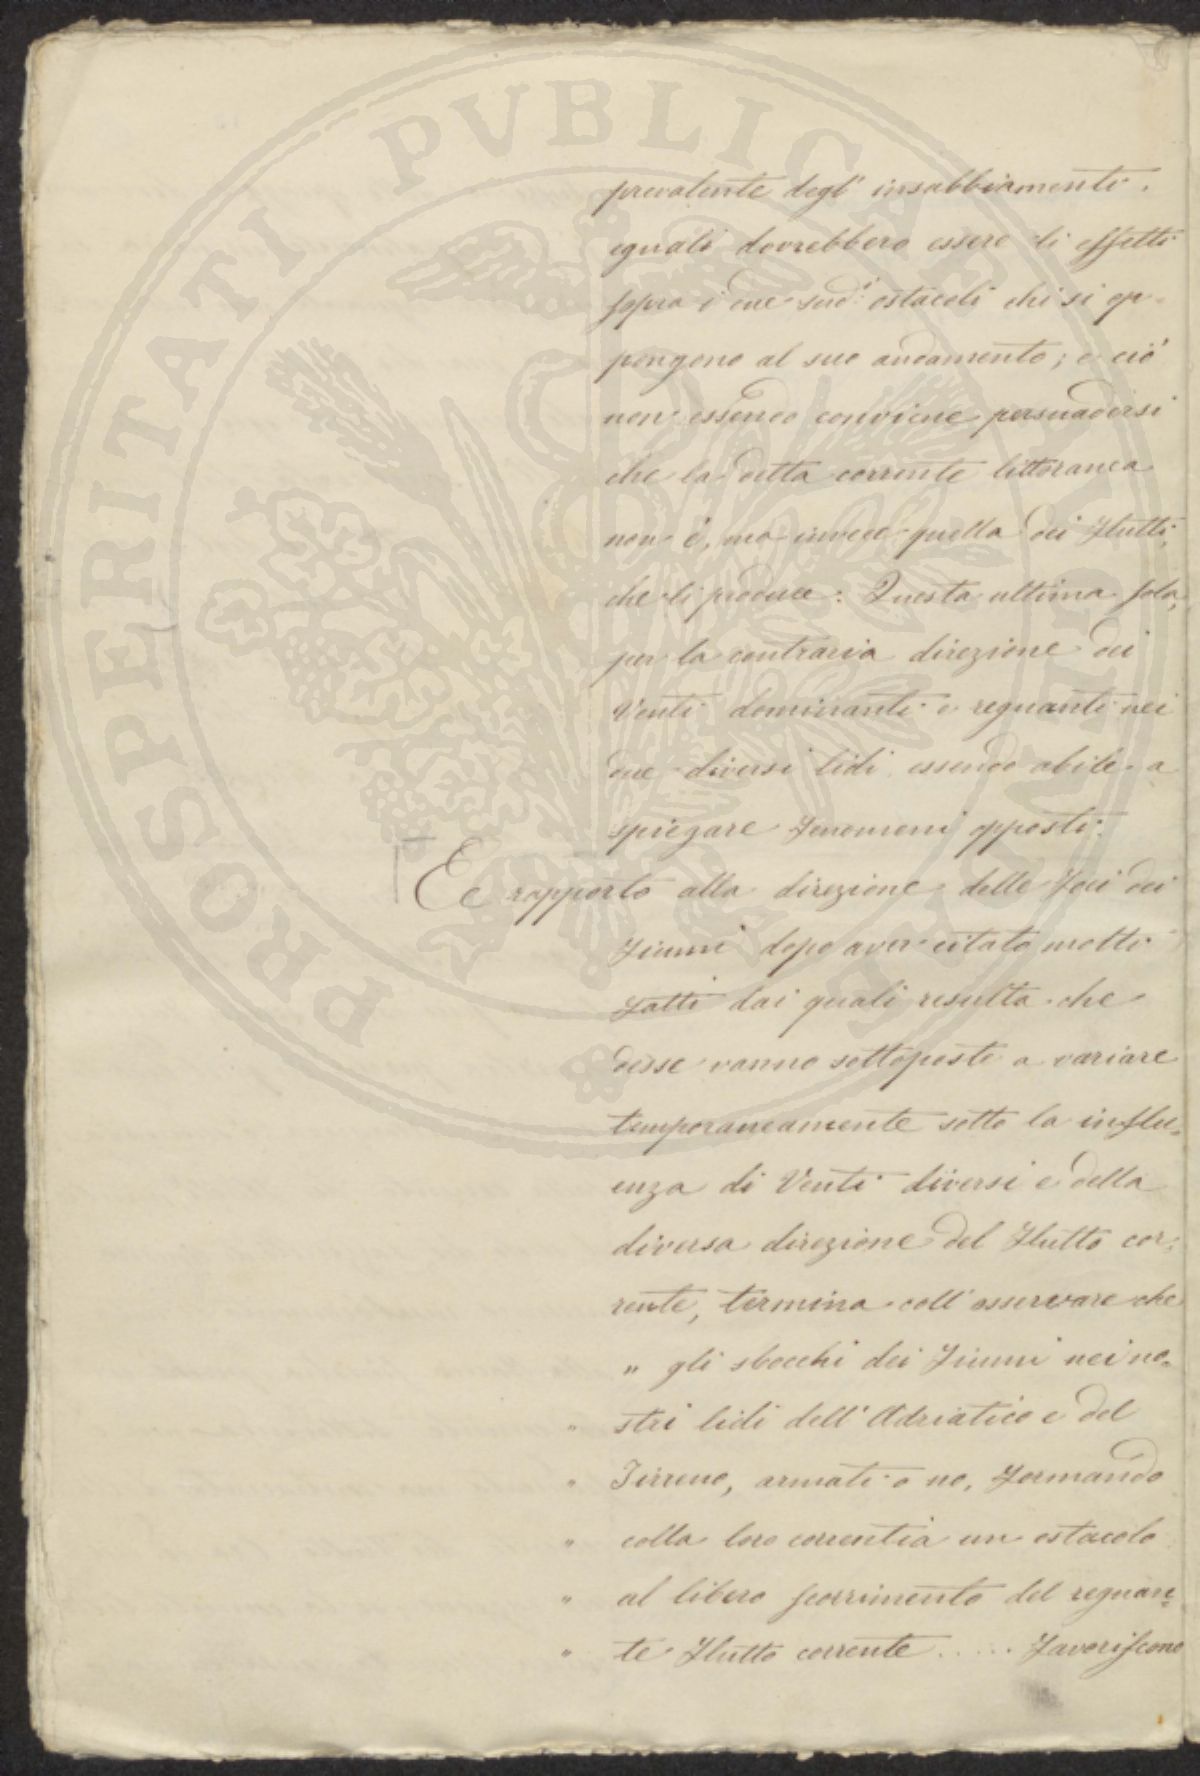 prevalente degl' insabbiamenti.
eguali dovrebbero essere li effetti
sopra i due sud.i ostacoli che si op-
pongono al suo andamento; e ciò
non essendo conviene persuadersi
che la detta corrente littoranea
non è, ma invece quella dei Flutti,
che li produce: Questa ultima sola,
per la contraria direzione dei
Venti dominanti e regnanti nei
due diversi lidi essendo abile a
spiegare Fenomeni opposti.
E rapporto alla direzione delle Foci dei
Fiumi dopo aver citato molti
Fatti dai quali resulta che
desse vanno sottoposte a variare
temporaneamente sotto la influ-
enza di Venti diversi e della
diversa direzione del Flutto cor-
rente, termina coll' osservare che
" gli sbocchi dei Fiumi nei no-
" stri lidi dell' Adriatico e del
" Tirreno, armati o no, formando
" colla loro correntia un ostacolo
" al libero scorrimento del regnan-
" te Flutto corrente..... Favoriscono
PROSPERITATI PUBLICAE